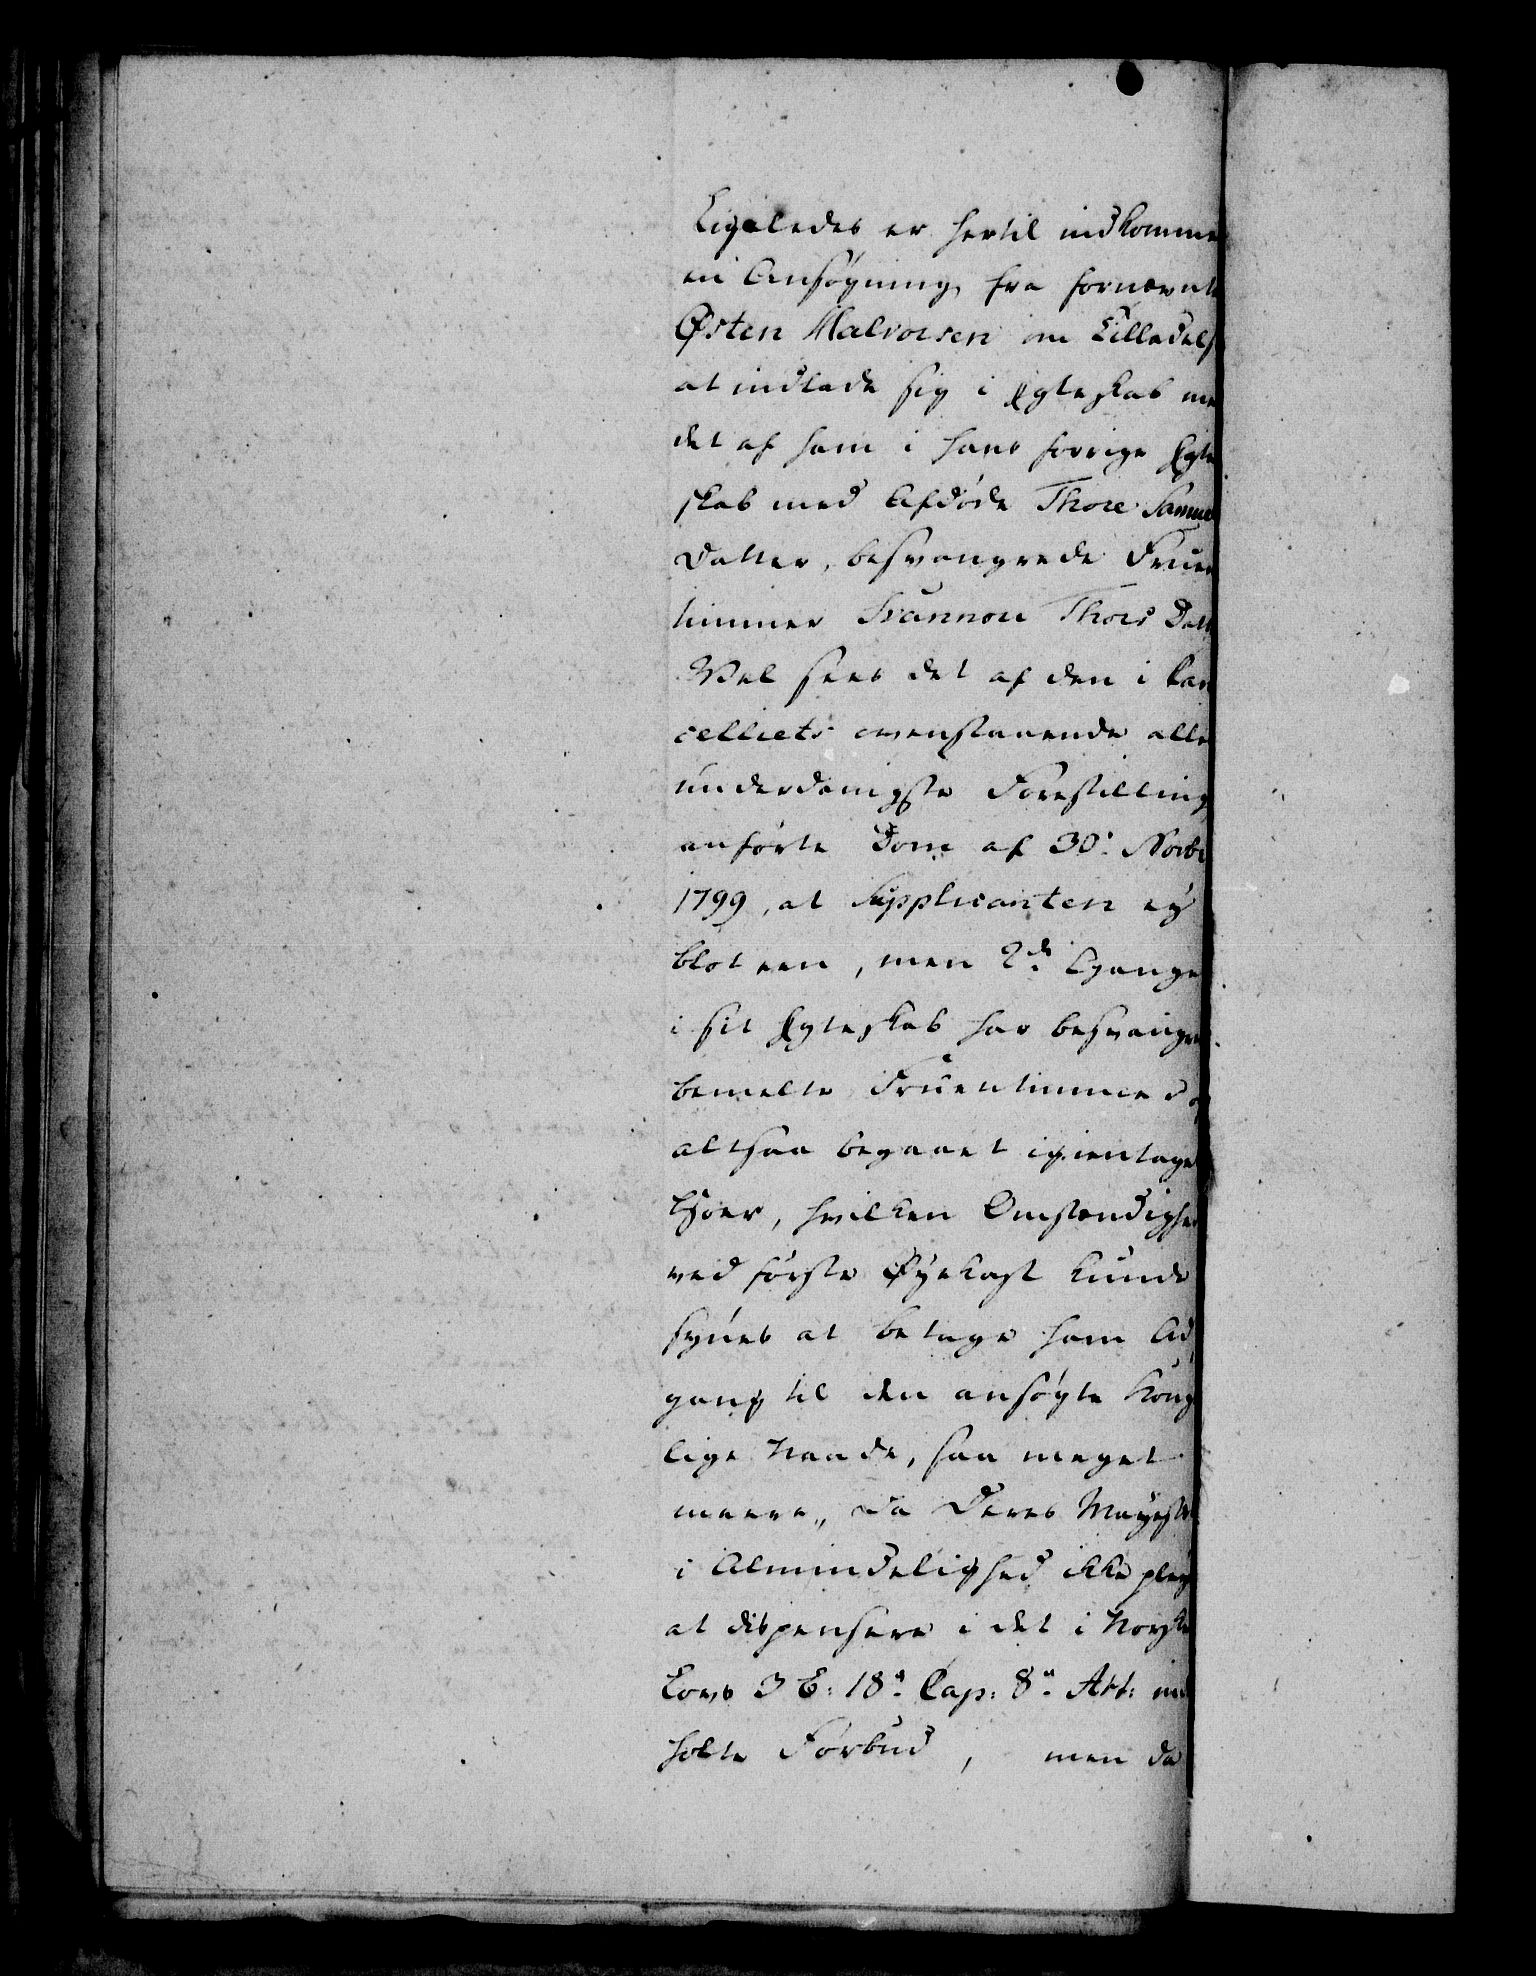 Ligeledes er hertil indkomme
en Ansøgning fra fornævnte
Østen Halvorsen om Tilladels
at indlade sig i Ægteskab me
det af ham i hans forrige Ægte
skab med Afdøde Thore Samuel
Datter, besvangrede Fruen
timmer Svannou Thors Datt
Vel sees det af den i Can
celliets ovenstaaende aller
underdanigste Forestilling
anførte Dom af 30: Novbr
1799, at Supplicanten ej
blot een, men 2de Gange
i sit Ægteskab har besvangre
bemelte Fruentimmer o
altsaa begaaet igientage
Hoer, hvilken Omstændighe
ved første Øyekast kunde
synes at betage ham Ad
gang til den ansøgte Kong
lige Naade, saa meget
meere, da Deres Mayestæt
i Almindelighed ikke pley
at dispensere i det i Norske
Lovs 3 B: 18de Cap: 8de Art: ind
holte Forbud, men da